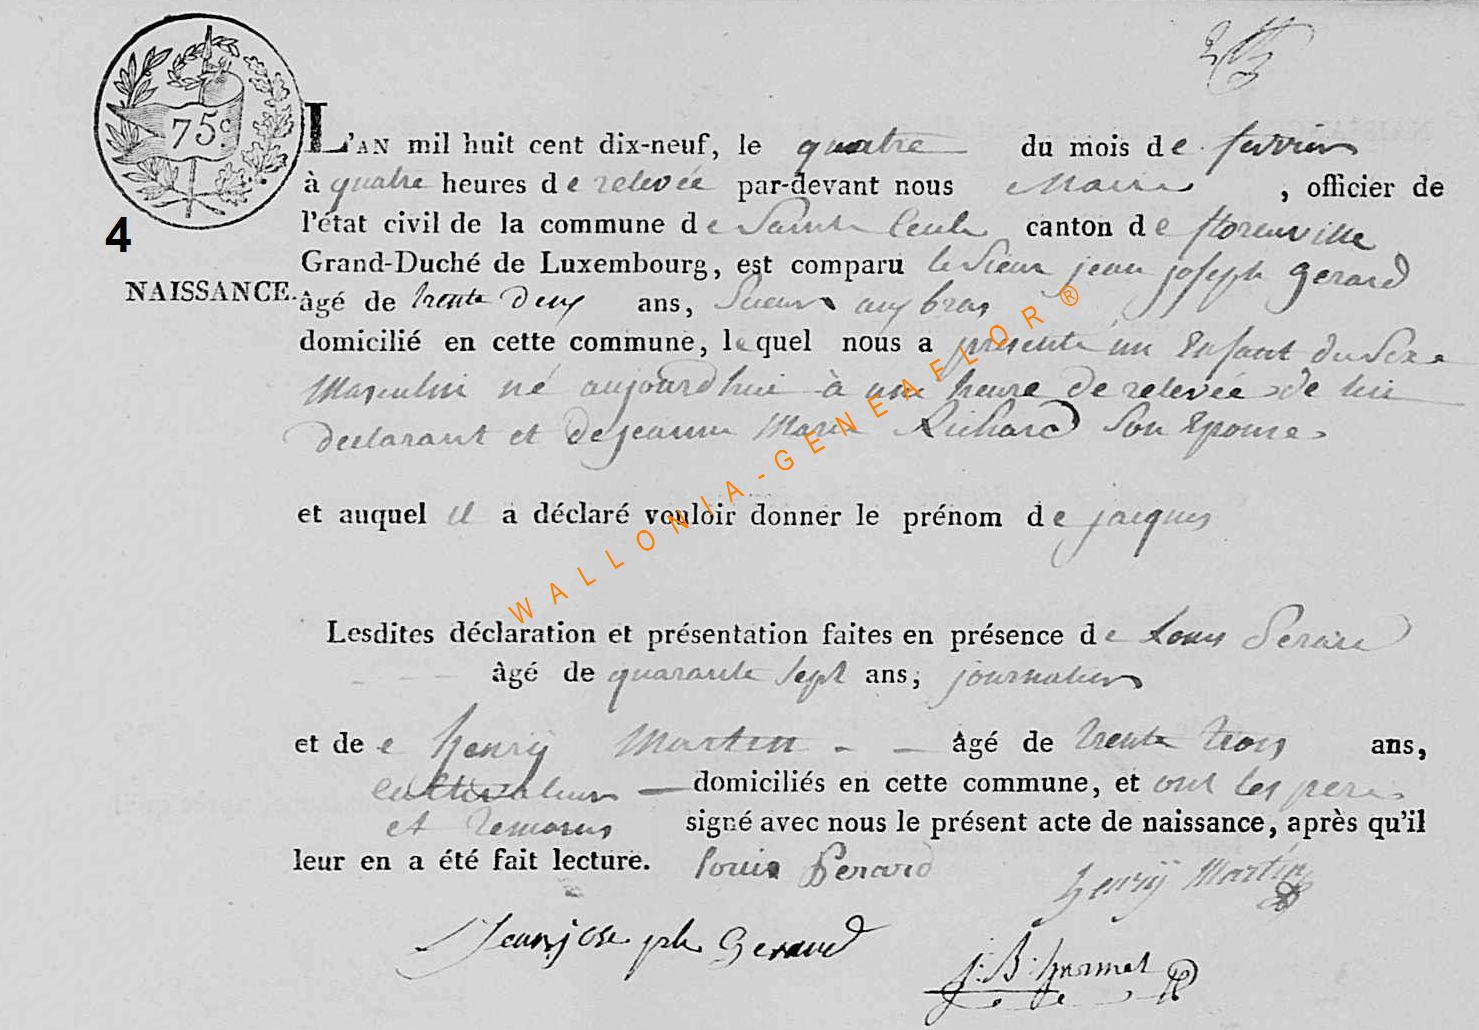 75c.
4
NAISSANCE.
L'AN mil huit cent dix-neuf, le quatre du mois de fevrier
à quatre heures de relevée par-devant nous Maire, officier de
l'état civil de la commune de Sainte Cecile canton de florenville
Grand-Duché de Luxembourg, est comparu le Sieur jean joseph Gerard
âgé de trente deux ans, Sieur aux bras
domicilié en cette commune, lequel nous a présenté un Enfant du Sexe
Masculin né aujourd'hui à une heure de relevée de lui
declarant et de jeanne Marie Richard Son Epouse
et auquel il a déclaré vouloir donner le prénom de jacques
Lesdites déclaration et présentation faites en présence de Louis
âgé de quarante sept ans, journalier
et de e henrÿ Martin âgé de trente trois ans,
cultivateur domiciliés en cette commune, et ont les pere
et temoins signé avec nous le présent acte de naissance, après qu'il
leur en a été fait lecture. louis henrÿ Martin
Jean joseph Gerard
J: B:
WALLONIA-GENEAFLOR®